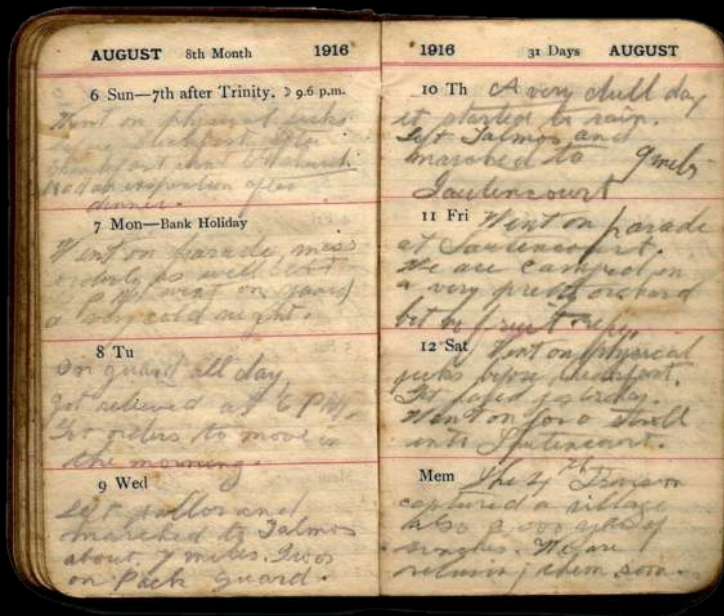 AUGUST 8th Month 1916
6 Sun—7th after Trinity. ☽ 9.6 p.m.
Went on physical jerks
before breakfast. After
breakfast went to church
Had an inspection after
dinner.
7 Mon—Bank Holiday
Went on parade, mess
orderly as well
went on guard
a very cold night.
8 Tu
On guard all day,
got relieved at 6 PM,
Got orders to move in
the morning.
9 Wed
Left and
marched to Talmos
about 7 miles. I was
on Pack Guard.
1916 31 Days AUGUST
10 Th A very dull day
it started to rain.
Left Talmos and
marched to 9 miles
11 Fri Went on parade
at
We are camped in
a very pretty orchard
but no fruit
12 Sat Went on physical
jerks before breakfast.
Got payed yesterday.
Went on for a stroll
into
Mem The 4th Division
captured a village
also 2,000 yds of
We are
relieving them soon.